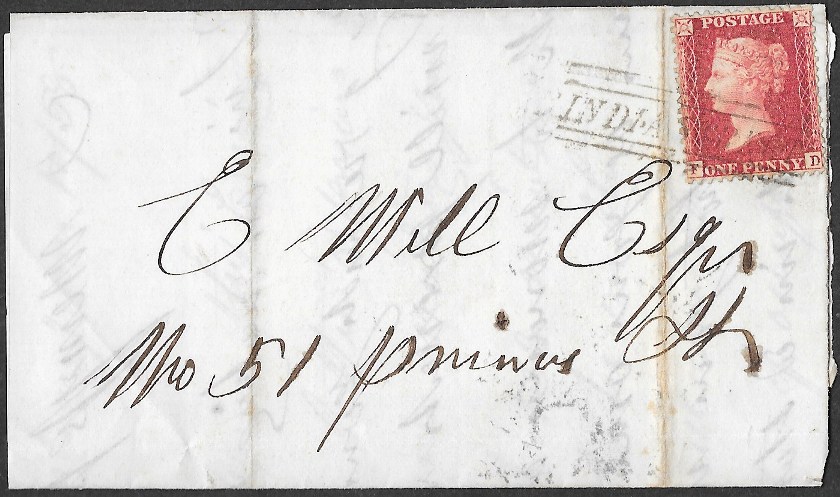 POSTAGE
INDIA
ONE PENNY
F D
E Mill Esqr
No 51 princes St